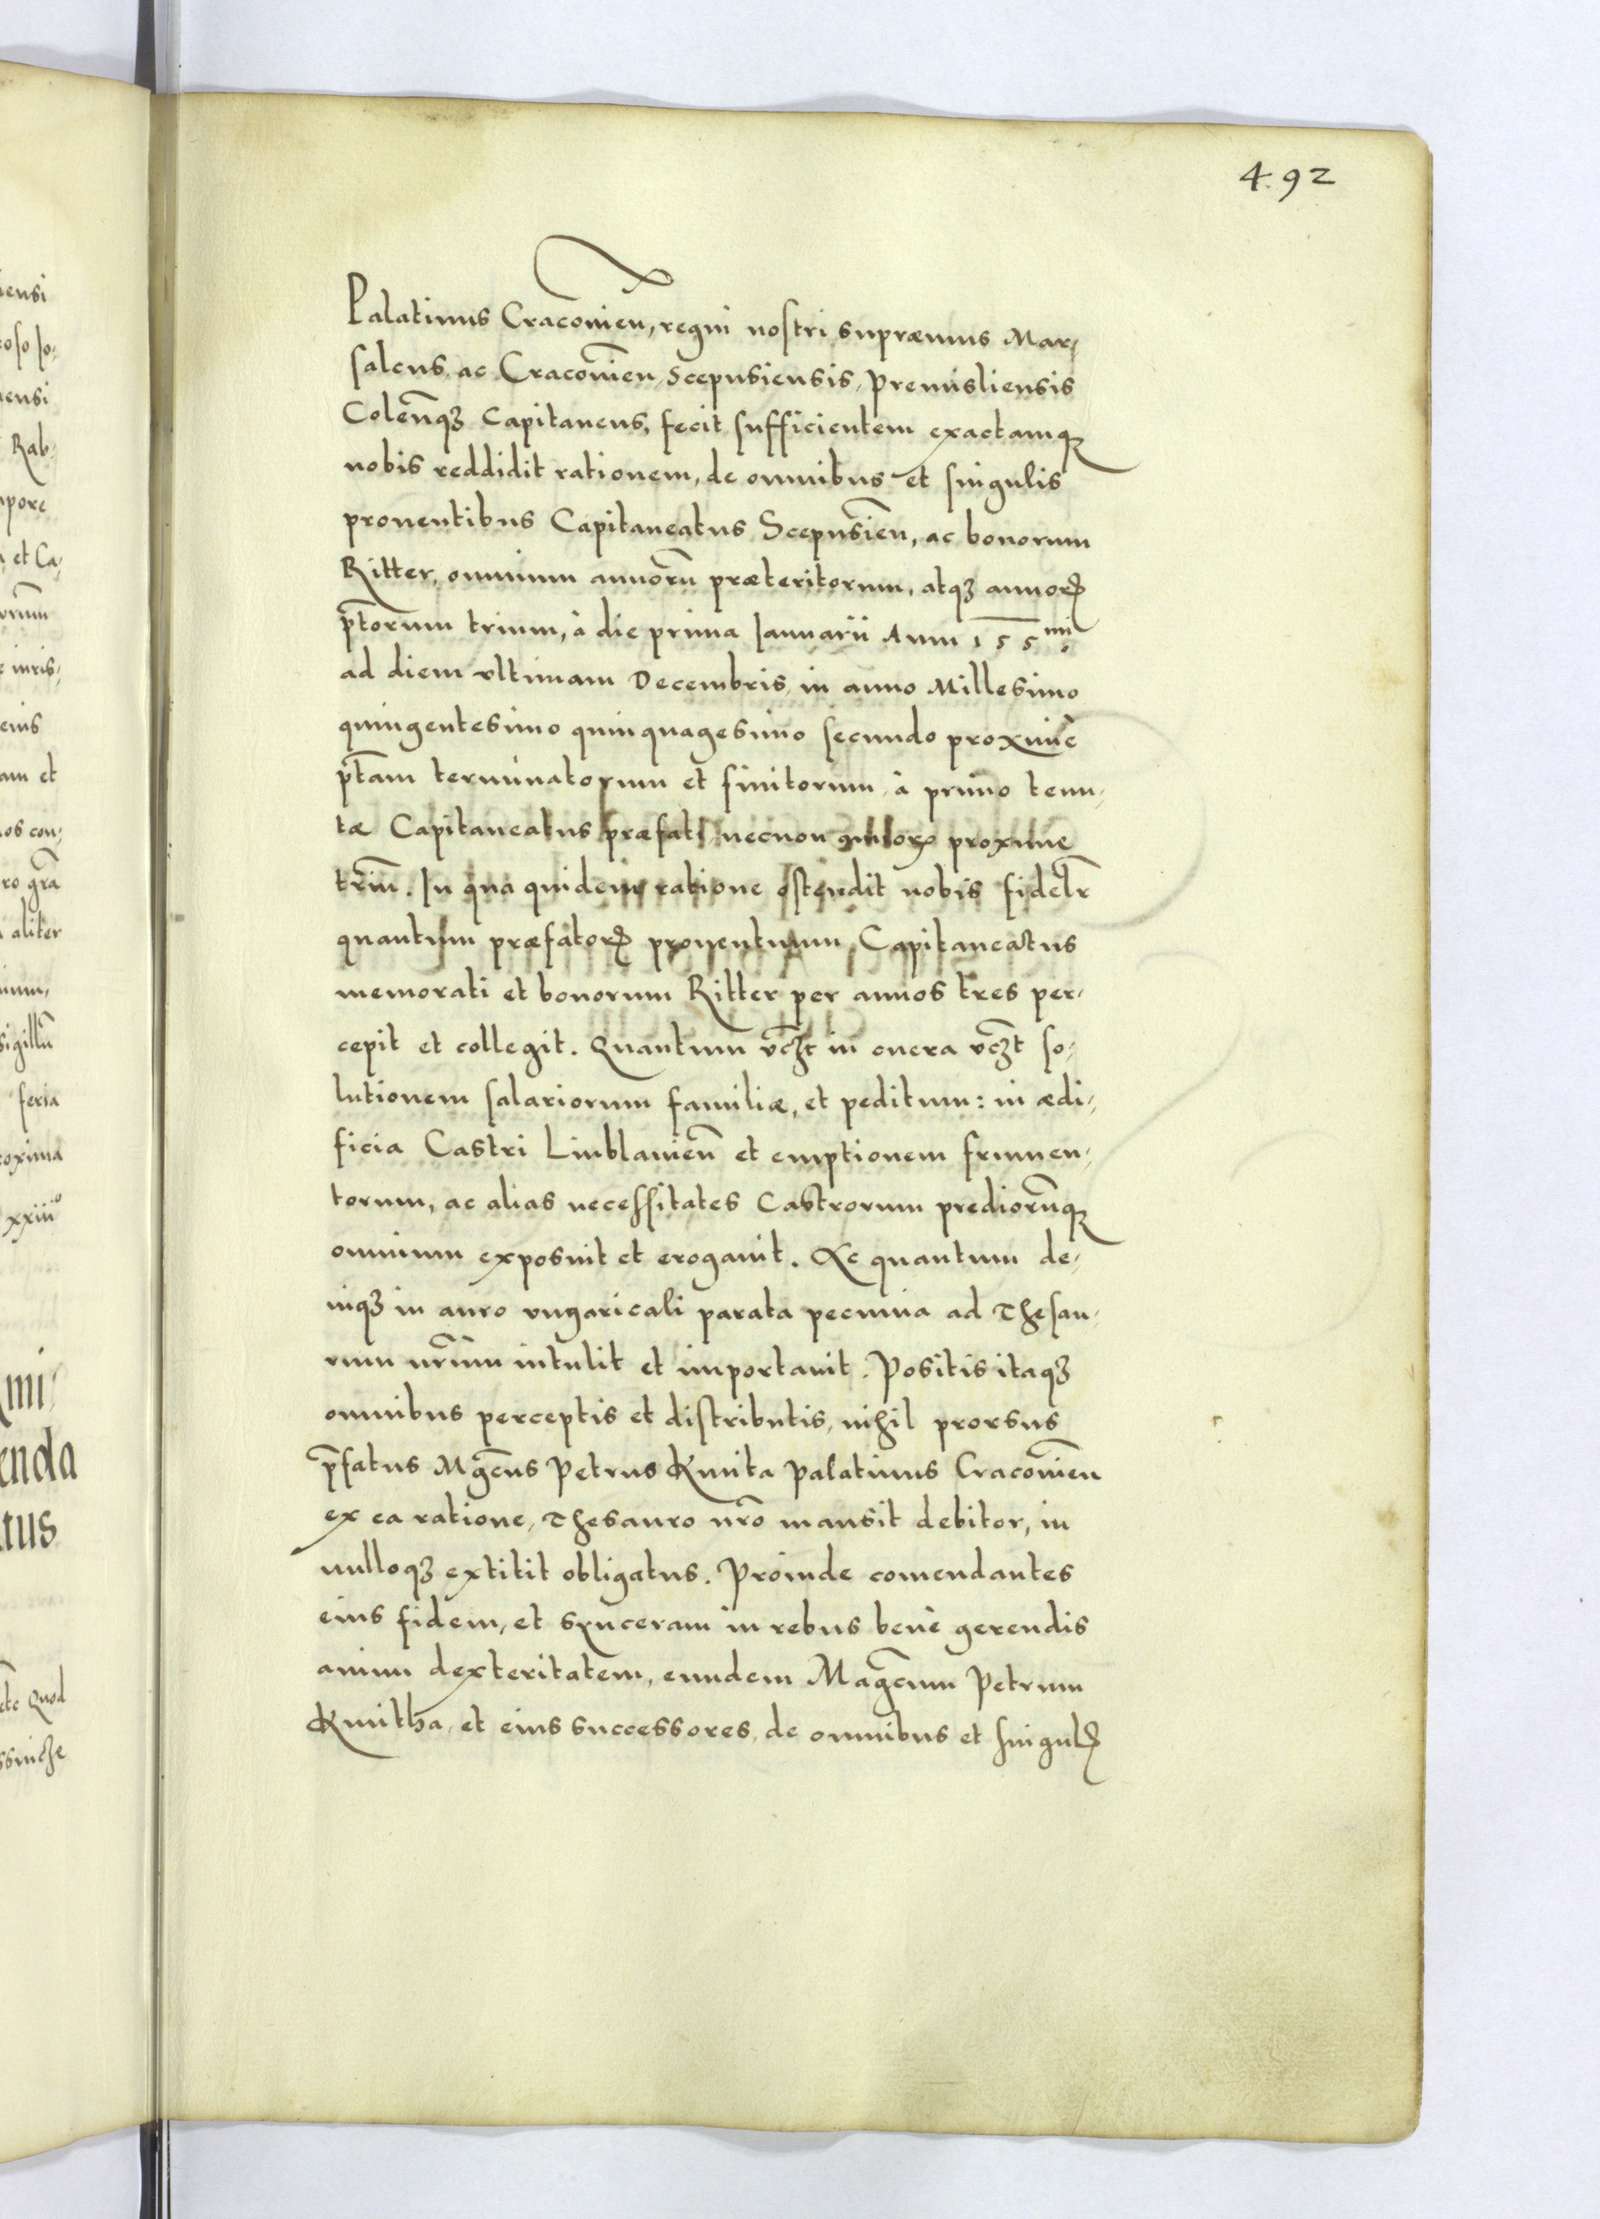 492
Palatinus Cracovieñ, regni nostri supraemus Mar,
salcus ac Cracovieñ, Scepusiensis, Premisliensis
Coleñqꝫ Capitaneus, fecit sufficientem exactamqꝫ
nobis reddidit rationem, de omnibus et singulis
proventibus Capitaneatus Scepusieñ, ac bonorum
Ritter, omnium annorũ præteritorum, atqꝫ annorꝝ
p̃torum trium, à die prima Ianuarii Anni 155
ad diem ultimam Decembris, in anno Millesimo
quingentesimo quinquagesimo secundo proximè
p̃tam terminatorum et finitorum, à primo tenu,
tæ Capitaneatus præfati necnon proxime
triũ. In qua quidem ratione ostendit nobis fidelr̃
quantum præfatorꝝ proventuum, Capitaneatus
memorati et bonorum Ritter per annos tres per,
cepit et collegit. Quantum vc̃ꝫt in onera vc̃ꝫt so,
lutionem salariorum familiæ, et peditum: in ædi,
ficia Castri Liublanieñ et emptionem frumen,
torum, ac alias necessitates Castrorum prediorũqꝫ
omnium exposuit et erogavit. Ac quantum de,
niqꝫ in auro ungaricali parata pecunia ad Thesau,
rum nr̃um intulit et importavit. Positis itaqꝫ
omnibus perceptis et distributis, nihil prorsus
p̃fatus Mgc̃us Petrus Kmita Palatinus Cracovieñ
ex ea ratione, Thesauro nr̃o mansit debitor, in
nulloqꝫ extitit obligatus. Proinde comendantes
eius fidem, et synceram in rebus benè gerendis
animi dexteritatem, eundem Magc̃um Petrum
Kmitha, et eius successores, de omnibus et singulꝭ